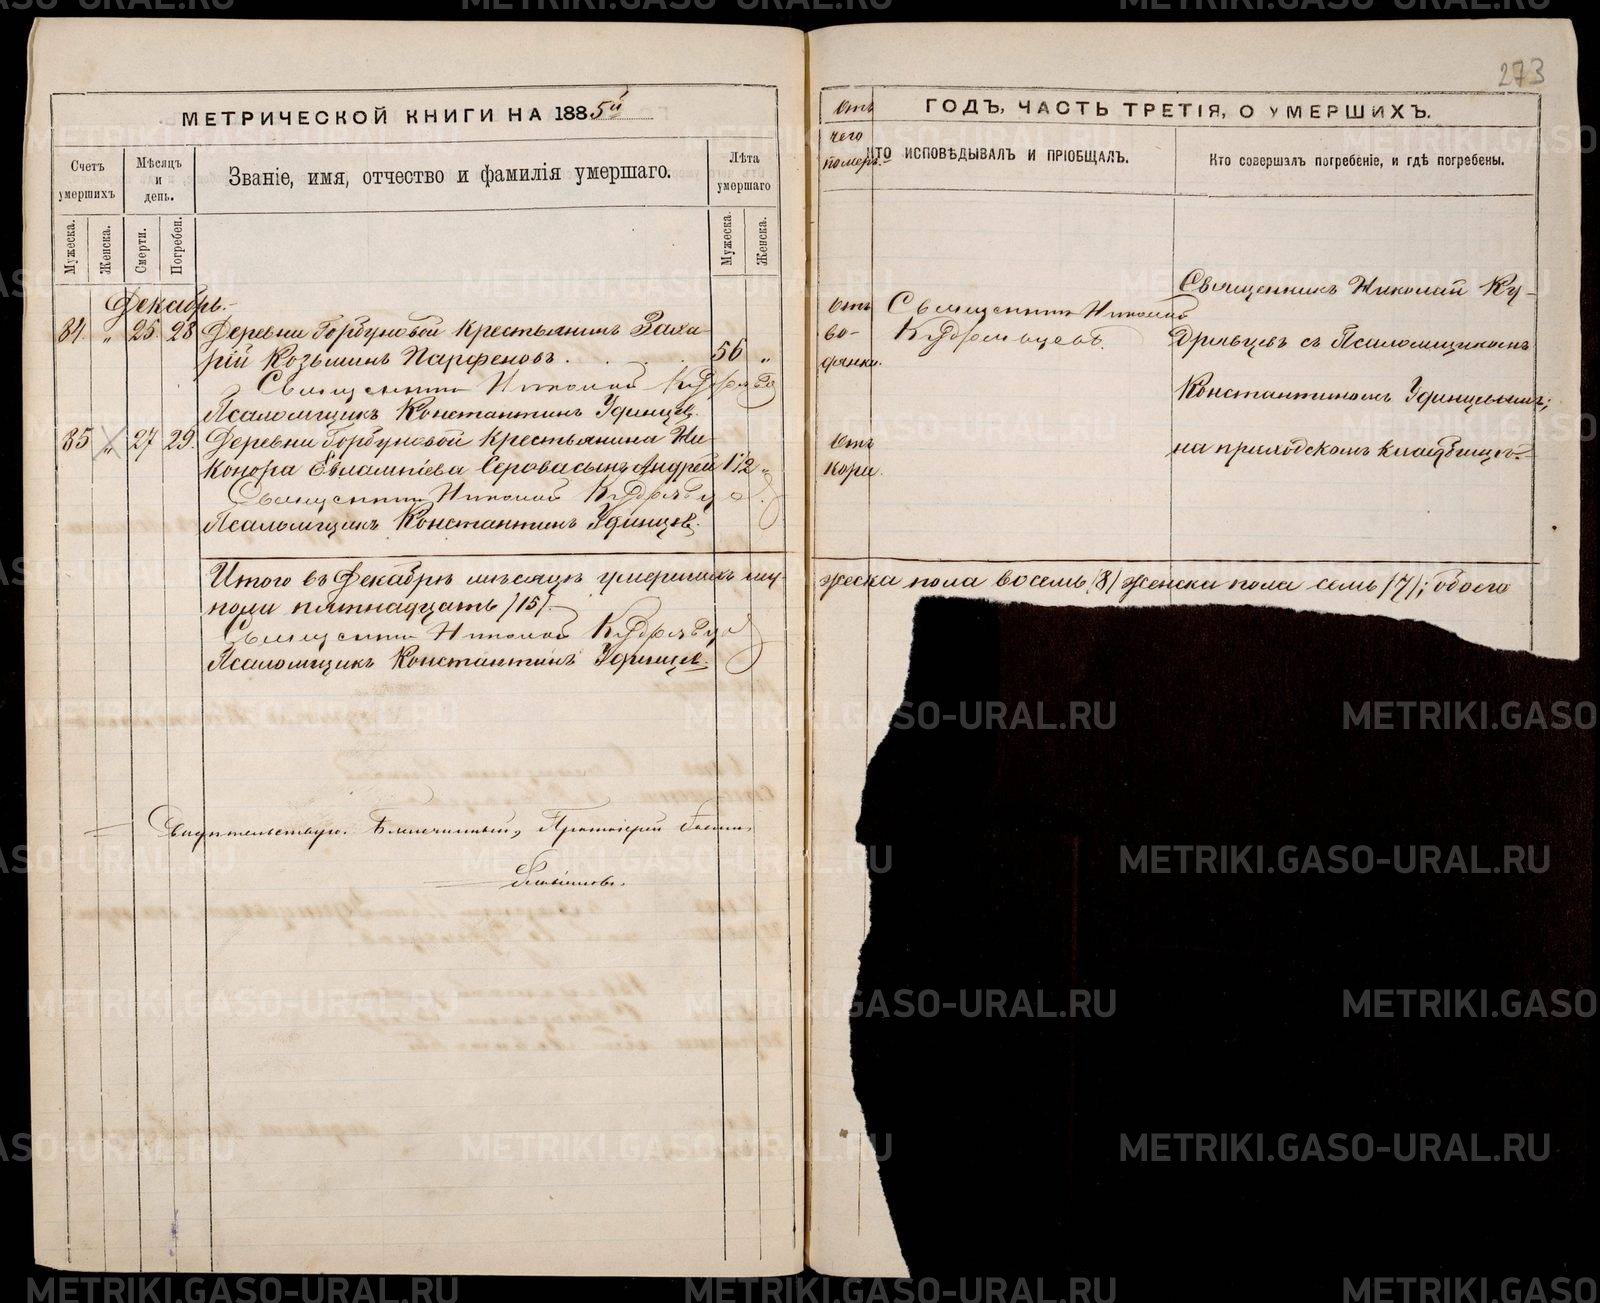 273
МЕТРИЧЕСКОЙ КНИГИ НА 1885й
Счетъ умершихъ
Мѣсяцъ и день.
Званіе, имя, отчество и фамилія умершаго.
Лѣта умершаго
Мужеска.
Женска.
Смерти.
Погребен.
Мужеска.
Женска.
Декабрь.
84. " 25. 28 Деревни Горбуновой крестьянинъ Заха-
рій Козьминъ Парфеновъ. 56 "
Священникъ Николай Кудрявцев
Псаломщикъ Константинъ Удинцев.
85 " 27 29. Деревни Горбуновой крестьянина Ни-
конора Евлампіева Серова сынъ Андрей 1½ "
Священникъ Николай Кудрявцев
Псаломщикъ Константинъ Удинцев.
Итого въ Декабрѣ мѣсяцѣ умершихъ му-
пола пятнадцать (15).
Священникъ Николай Кудрявцев
Псаломщикъ Константинъ Удинцев.
Свидѣтельствую. Благочинный, Протоіерей
ГОДЪ, ЧАСТЬ ТРЕТІЯ, О УМЕРШИХЪ.
Отъ
чего
померъ.
КТО ИСПОВѢДЫВАЛЪ И ПРІОБЩАЛЪ.
Кто совершалъ погребеніе, и гдѣ погребены.
Отъ
во-
дянки.
Священникъ Николай
Кудрявцевъ.
Священникъ Николай Ку-
дрявцевъ съ Псаломщикомъ
Константиномъ Удинцевымъ;
на приходскомъ кладбищѣ.
Отъ
кори.
жеска пола восемь (8) женска пола семь (7); обоего
METRIKI.GASO-URAL.RU